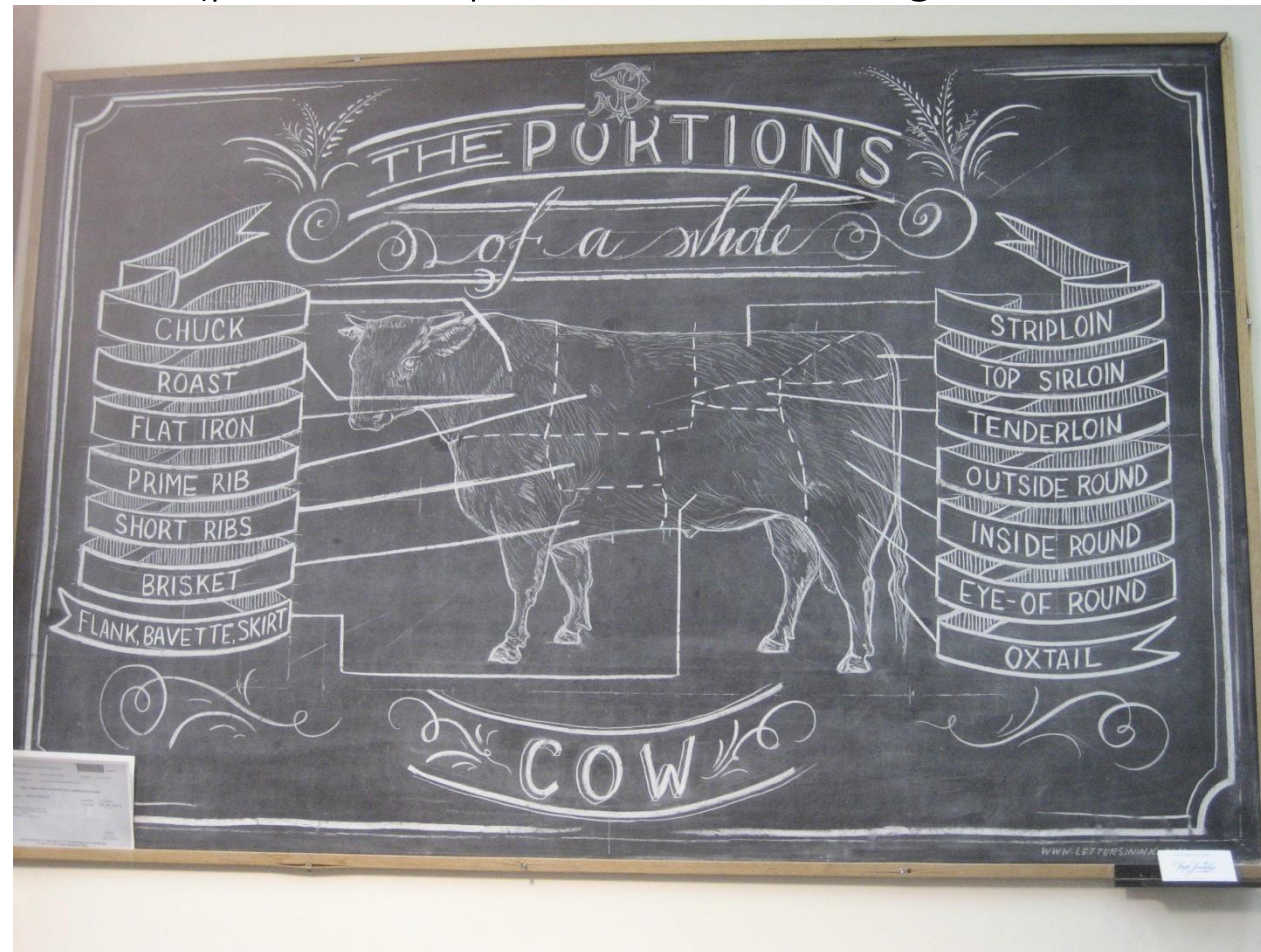 THE PORTIONS
of a whole
CHUCK
ROAST
FLAT IRON
PRIME RIB
SHORT RIBS
BRISKET
FLANK, BAVETTE, SKIRT
STRIPLOIN
TOP SIRLOIN
TENDERLOIN
OUTSIDE ROUND
INSIDE ROUND
EYE-OF ROUND
OXTAIL
COW